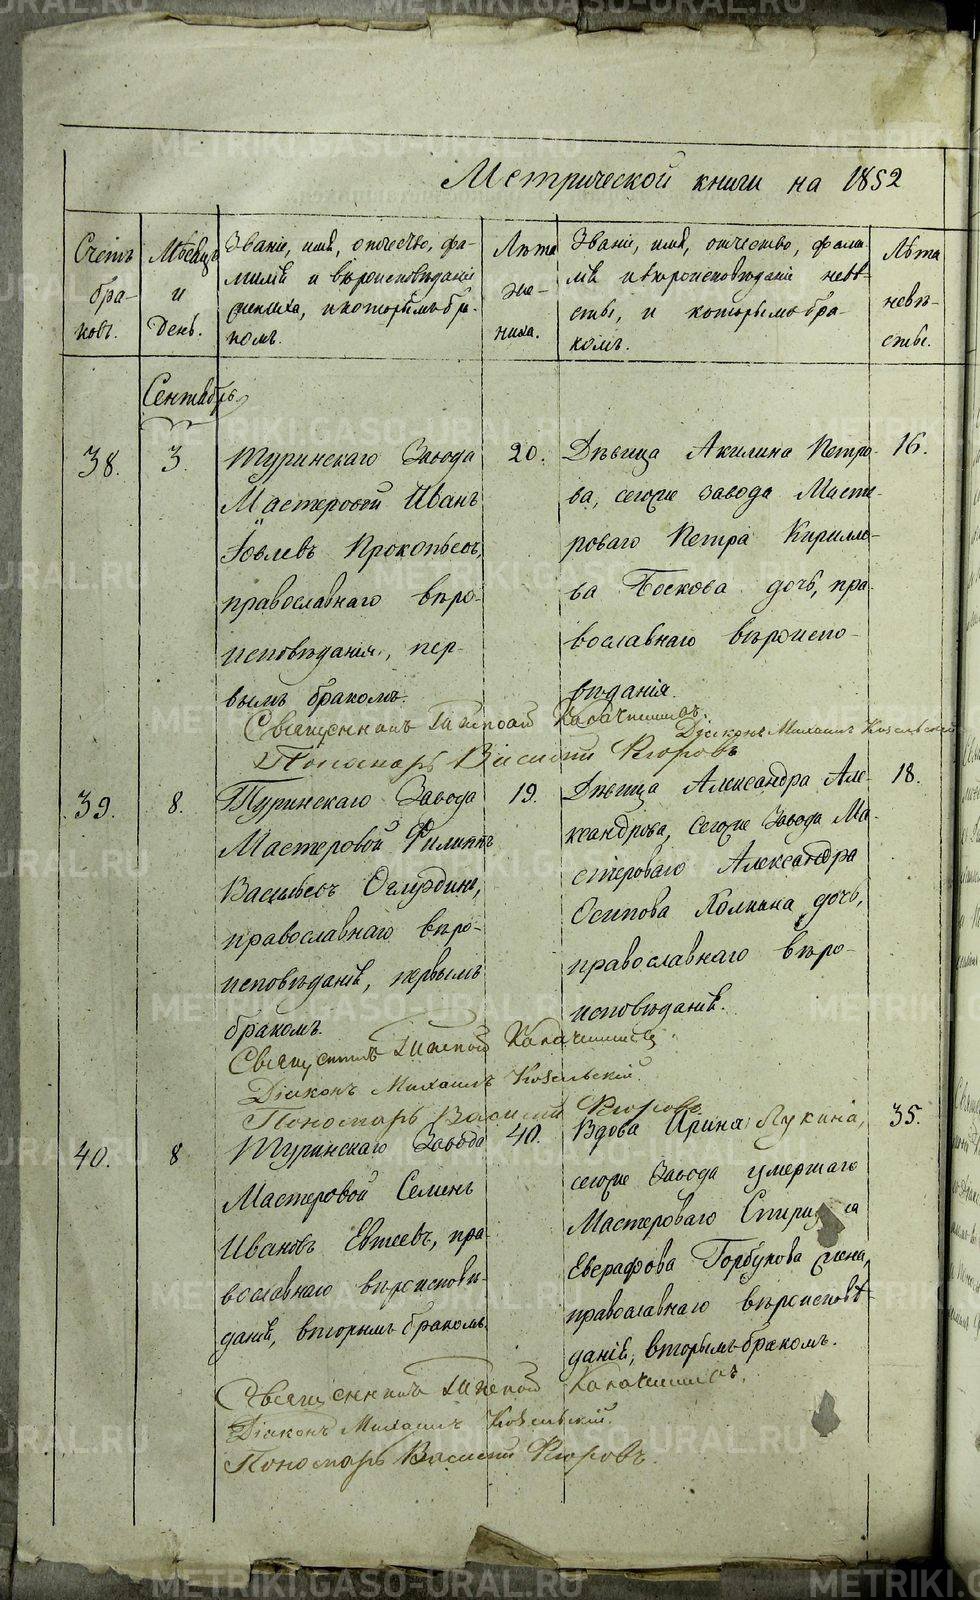 Метрической книги на 1852
Счетъ бра- ковъ.
Мѣсяцъ и День.
Званіе, имя, отчество, фа-
милія и вѣроисповѣданіе
жениха, и которымъ бра-
комъ.
Лѣта же- ниха.
Званіе, имя, отчество, фами-
лія и вѣроисповѣданіе невѣ-
сты, и которымъ бра-
комъ.
Лѣта невѣ- сты.
Сентябрь
38.
3.
Туринскаго Завода
Мастеровой Иванъ
Іовлевъ Прокопьевъ,
православнаго вѣро-
исповѣданія, пер-
вымъ бракомъ.
20.
Дѣвица Акилина Петро-
ва, сегоже завода Масте-
роваго Петра Кирилло-
ва Боскова дочь, пра-
вославнаго вѣроиспо-
вѣданія.
16.
Священникъ Калачниковъ.
Діаконъ Михаилъ Козельскій
Пономарь Василій Егоровъ
39.
8.
Туринскаго Завода
Мастеровой Филиппъ
Васильевъ
православнаго вѣро-
исповѣданія, первымъ
бракомъ.
19.
Дѣвица Александра Але-
ксандрова, сегоже Завода Ма-
стероваго Александра
Осипова Колкина дочь,
православнаго вѣро-
исповѣданія.
18.
Священникъ Калачниковъ.
Діаконъ Михаилъ Козельскій.
Пономарь Василій Егоровъ
40.
8
Туринскаго Завода
Мастеровой Семенъ
Ивановъ Евтеевъ, пра-
вославнаго вѣроисповѣ-
данія, вторымъ бракомъ.
40.
Вдова Ирина Лукина,
сегоже Завода умершаго
Мастероваго
Евграфова Горбунова жена,
православнаго вѣроисповѣ-
данія, вторымъ бракомъ.
35.
Священникъ Калачниковъ.
Діаконъ Михаилъ Козельскій.
Пономарь Василій Егоровъ.
METRIKI.GASO-URAL.RU